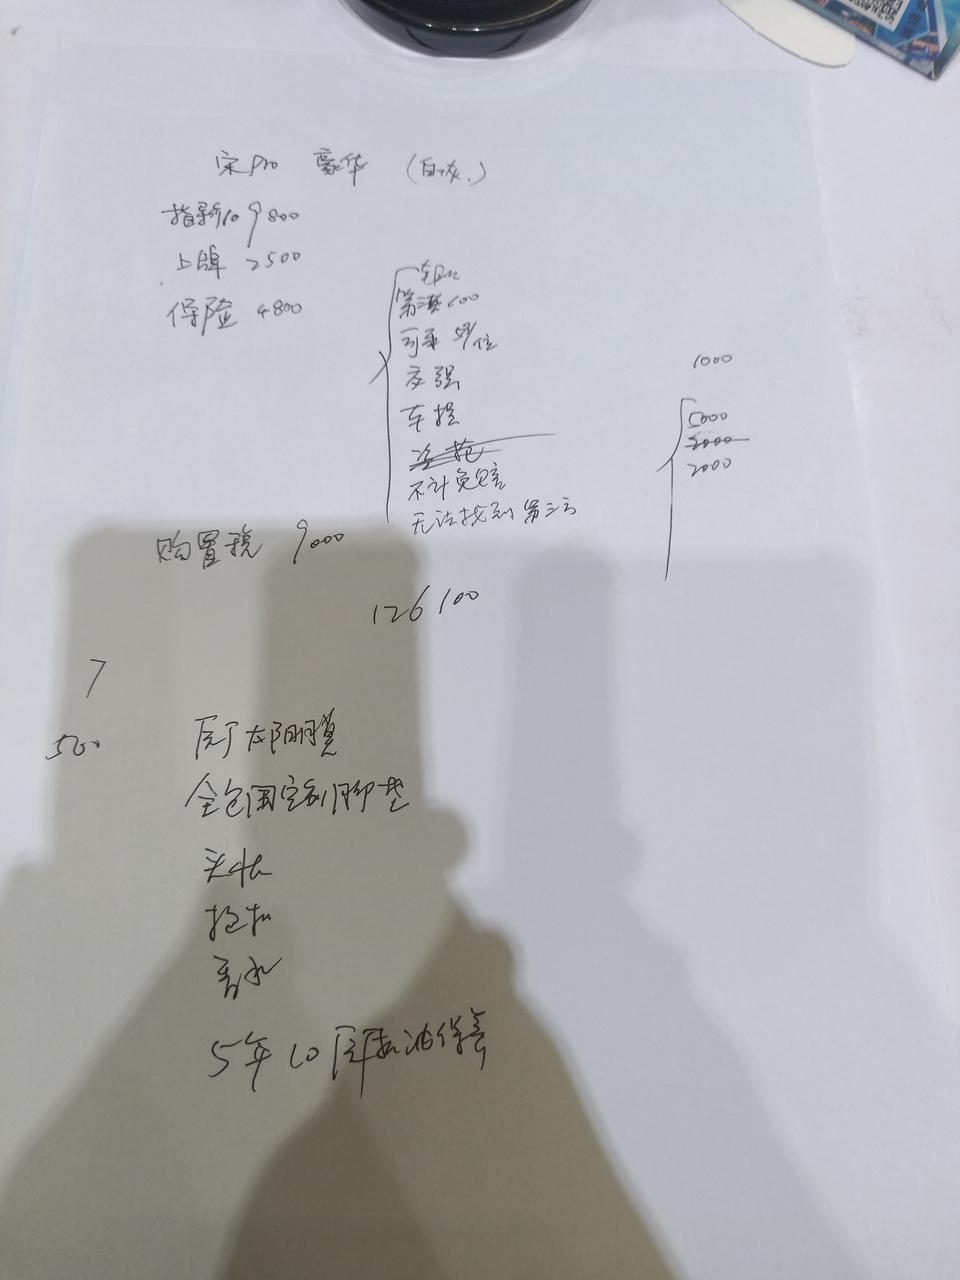 宋Pro 豪华 (白+灰.)
指导价109800
上牌 2500
保险 4800
第三 100
司乘 5个/位
交强
车损
盗抢
不计免赔
无法找到第三方
1000
5000
2000
2000
购置税 9000
126100
7
500
原厂太阳膜
全包围定制脚垫
头枕
抱枕
香水
5年10次机油保养